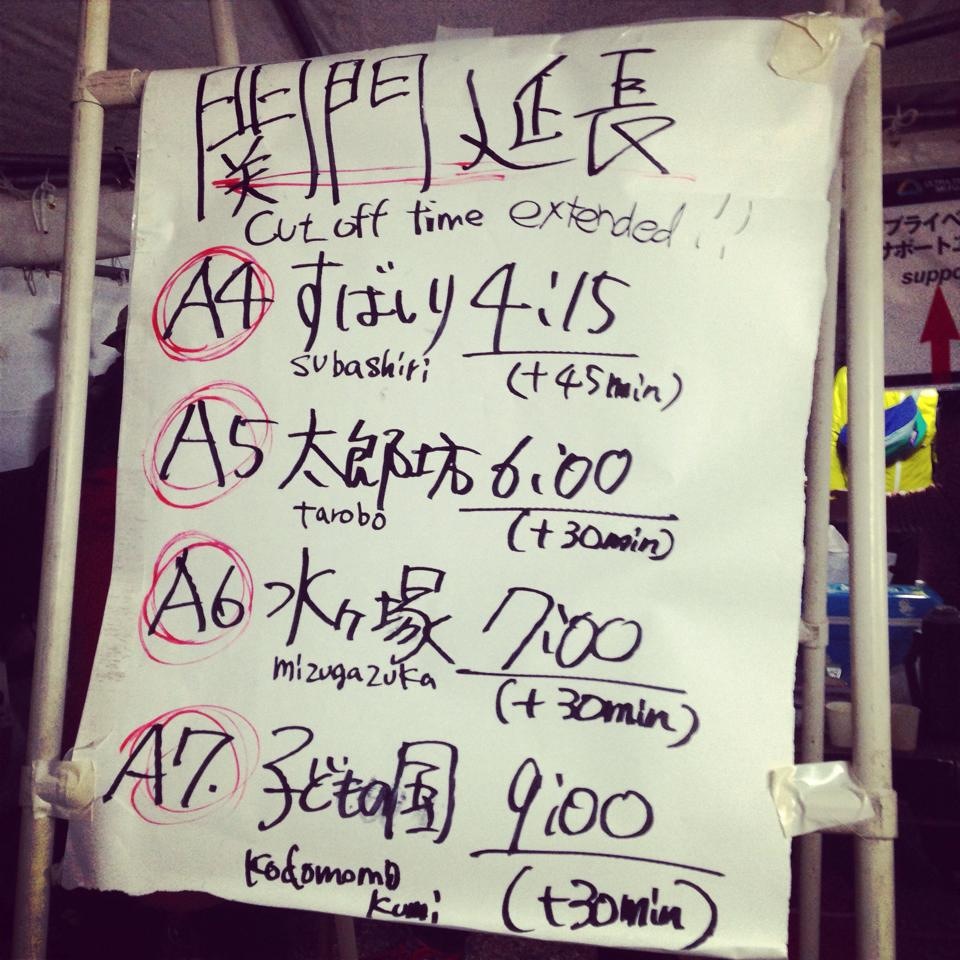 関門延長
Cut off time extended!!
A4 すばしり 4:15
subashiri (+45min)
A5 太郎坊 6:00
tarobo (+30min)
A6 水ヶ塚 7:00
mizugazuka (+30min)
A7. 子どもの国 9:00
kodomomo
kuni (+30min)
プライベ
サポートエ
suppo